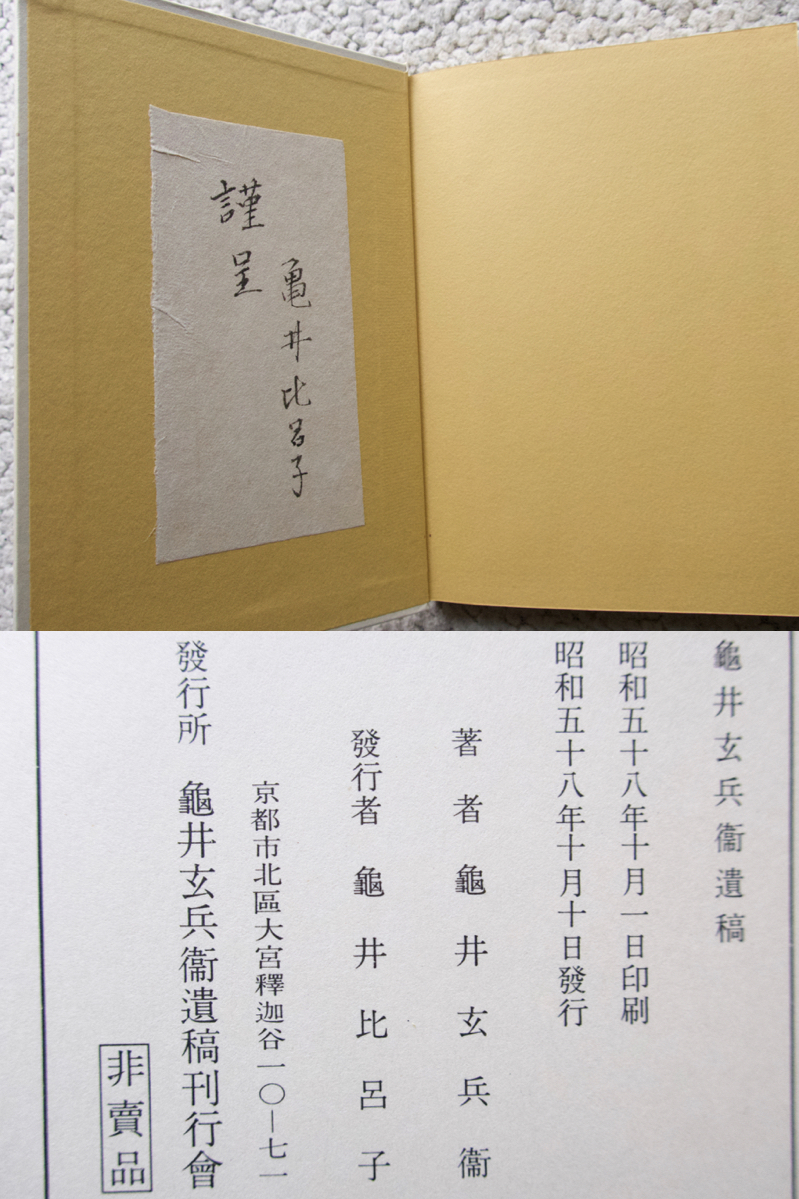 亀井比呂子
謹呈
龜井玄兵衞遺稿
昭和五十八年十月一日印刷
昭和五十八年十月十日發行
著者 龜井玄兵衞
發行者 龜井比呂子
京都市北區大宮釋迦谷一〇―七一
發行所 龜井玄兵衞遺稿刊行會
非賣品